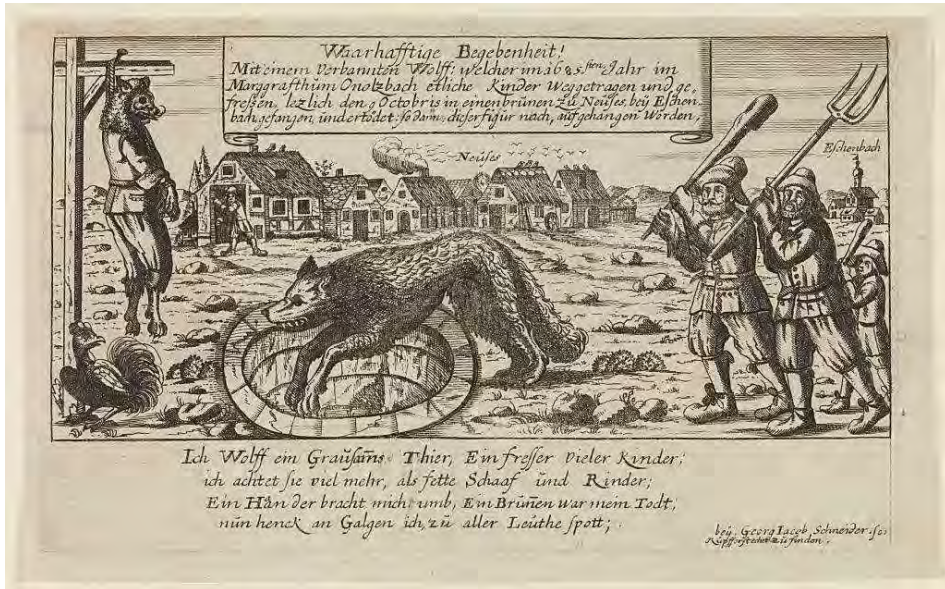 Waarhafftige Begebenheit!
Mit einem Verbannten Wolff; welcher im 1685.sten Jahr im
Marggrafthum Onoltzbach etliche Kinder Weggetragen und ge,
fressen, lezlich den 9 Octobris in einen brünen zü Neüses, beÿ Eschen,
bach gefangen, ündertödet, so dann, dieser figür nach, aufgehangen Worden,
Neüses
Eschenbach
Ich Wolff ein Graüsams Thier, Ein fresser Vieler Kinder;
ich achtet sie viel mehr, als fette Schaaf ünd Rinder;
Ein Hän der bracht mich ümb, Ein Brünen war mein Todt,
nün henck an Galgen ich, zü aller Leüthe spott;
beÿ, Georg Iacob Schneider.
Küpfferstecher zü finden.